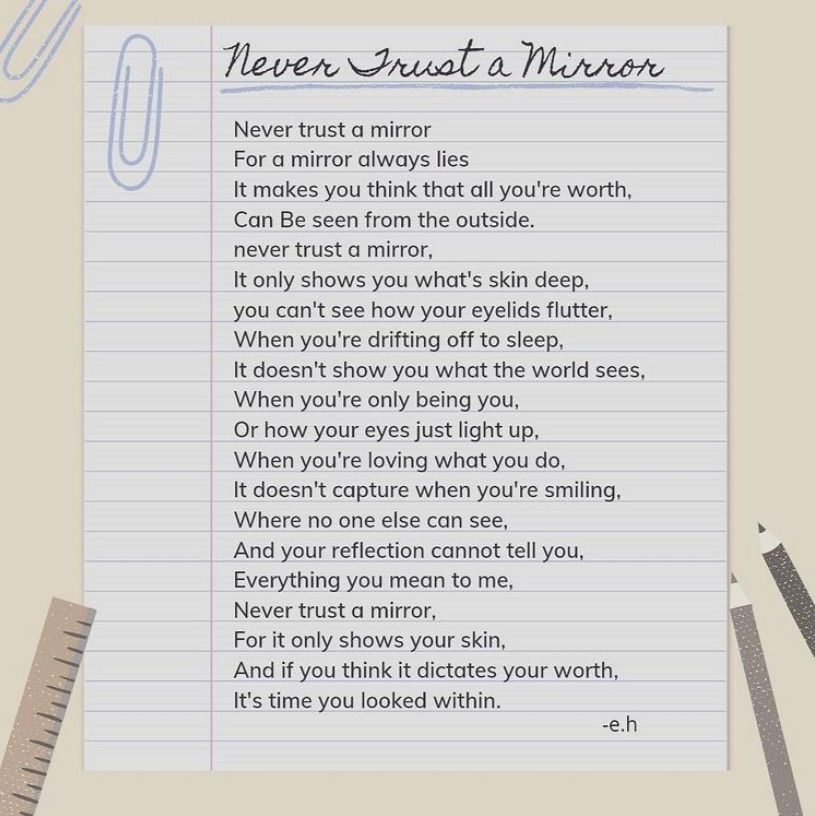 Never Trust a Mirror
Never trust a mirror
For a mirror always lies
It makes you think that all you're worth,
Can Be seen from the outside.
never trust a mirror,
It only shows you what's skin deep,
you can't see how your eyelids flutter,
When you're drifting off to sleep,
It doesn't show you what the world sees,
When you're only being you,
Or how your eyes just light up,
When you're loving what you do,
It doesn't capture when you're smiling,
Where no one else can see,
And your reflection cannot tell you,
Everything you mean to me,
Never trust a mirror,
For it only shows your skin,
And if you think it dictates your worth,
It's time you looked within.
-e.h